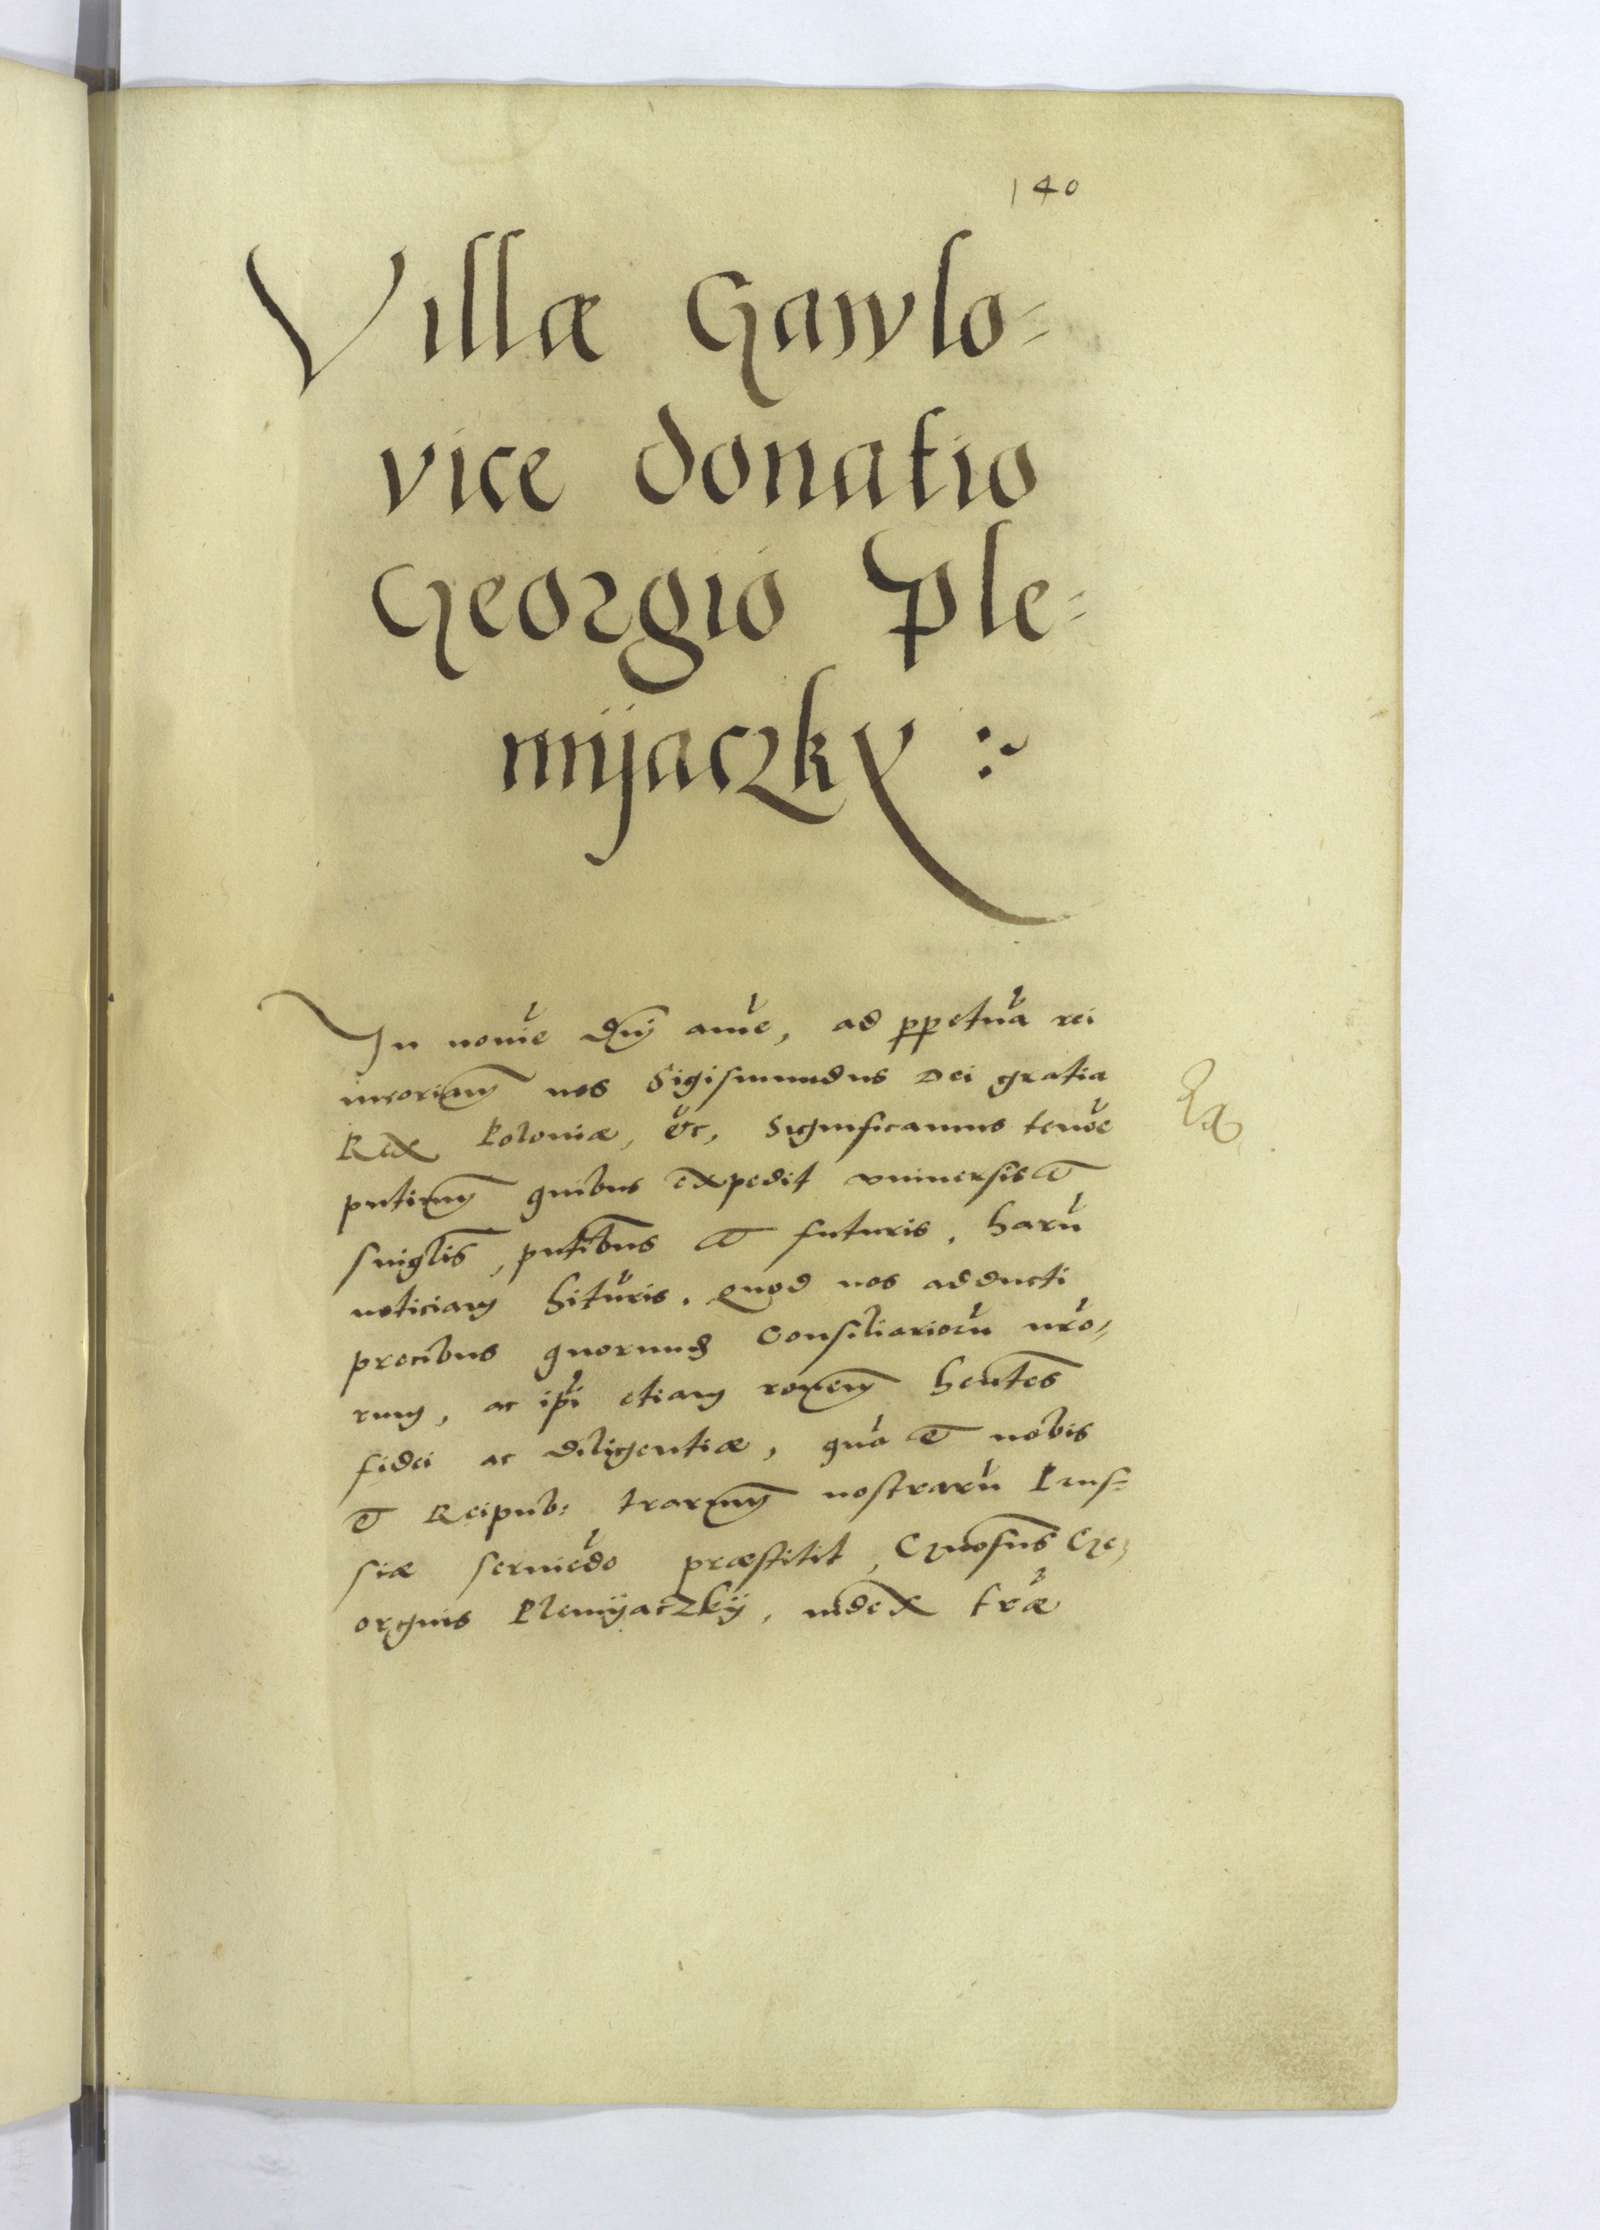 140
Villæ Gawlo=
vice donatio
Georgio Ple=
mijaczky :~
In noïe Dnj ame, ad ppetua rei
mẽoriam nos Sigismundus Dei gratia
Rex Poloniæ, &c, Significamus tenoe
pntium quibus expedit vniuersis et
singlis, pntibus et futuris, haru
noticiam hituris, Quod nos adducti
precibus quorund Consiliarioru nro=
rum, ac ipi etiam ronem hentes
fidei ac diligentiæ, qua et nobis
et Reipub: trarum nostraru Prus=
siæ seruiedo præstitit, Gnosus Ge=
orgius Plemijaczkij, iudex træ